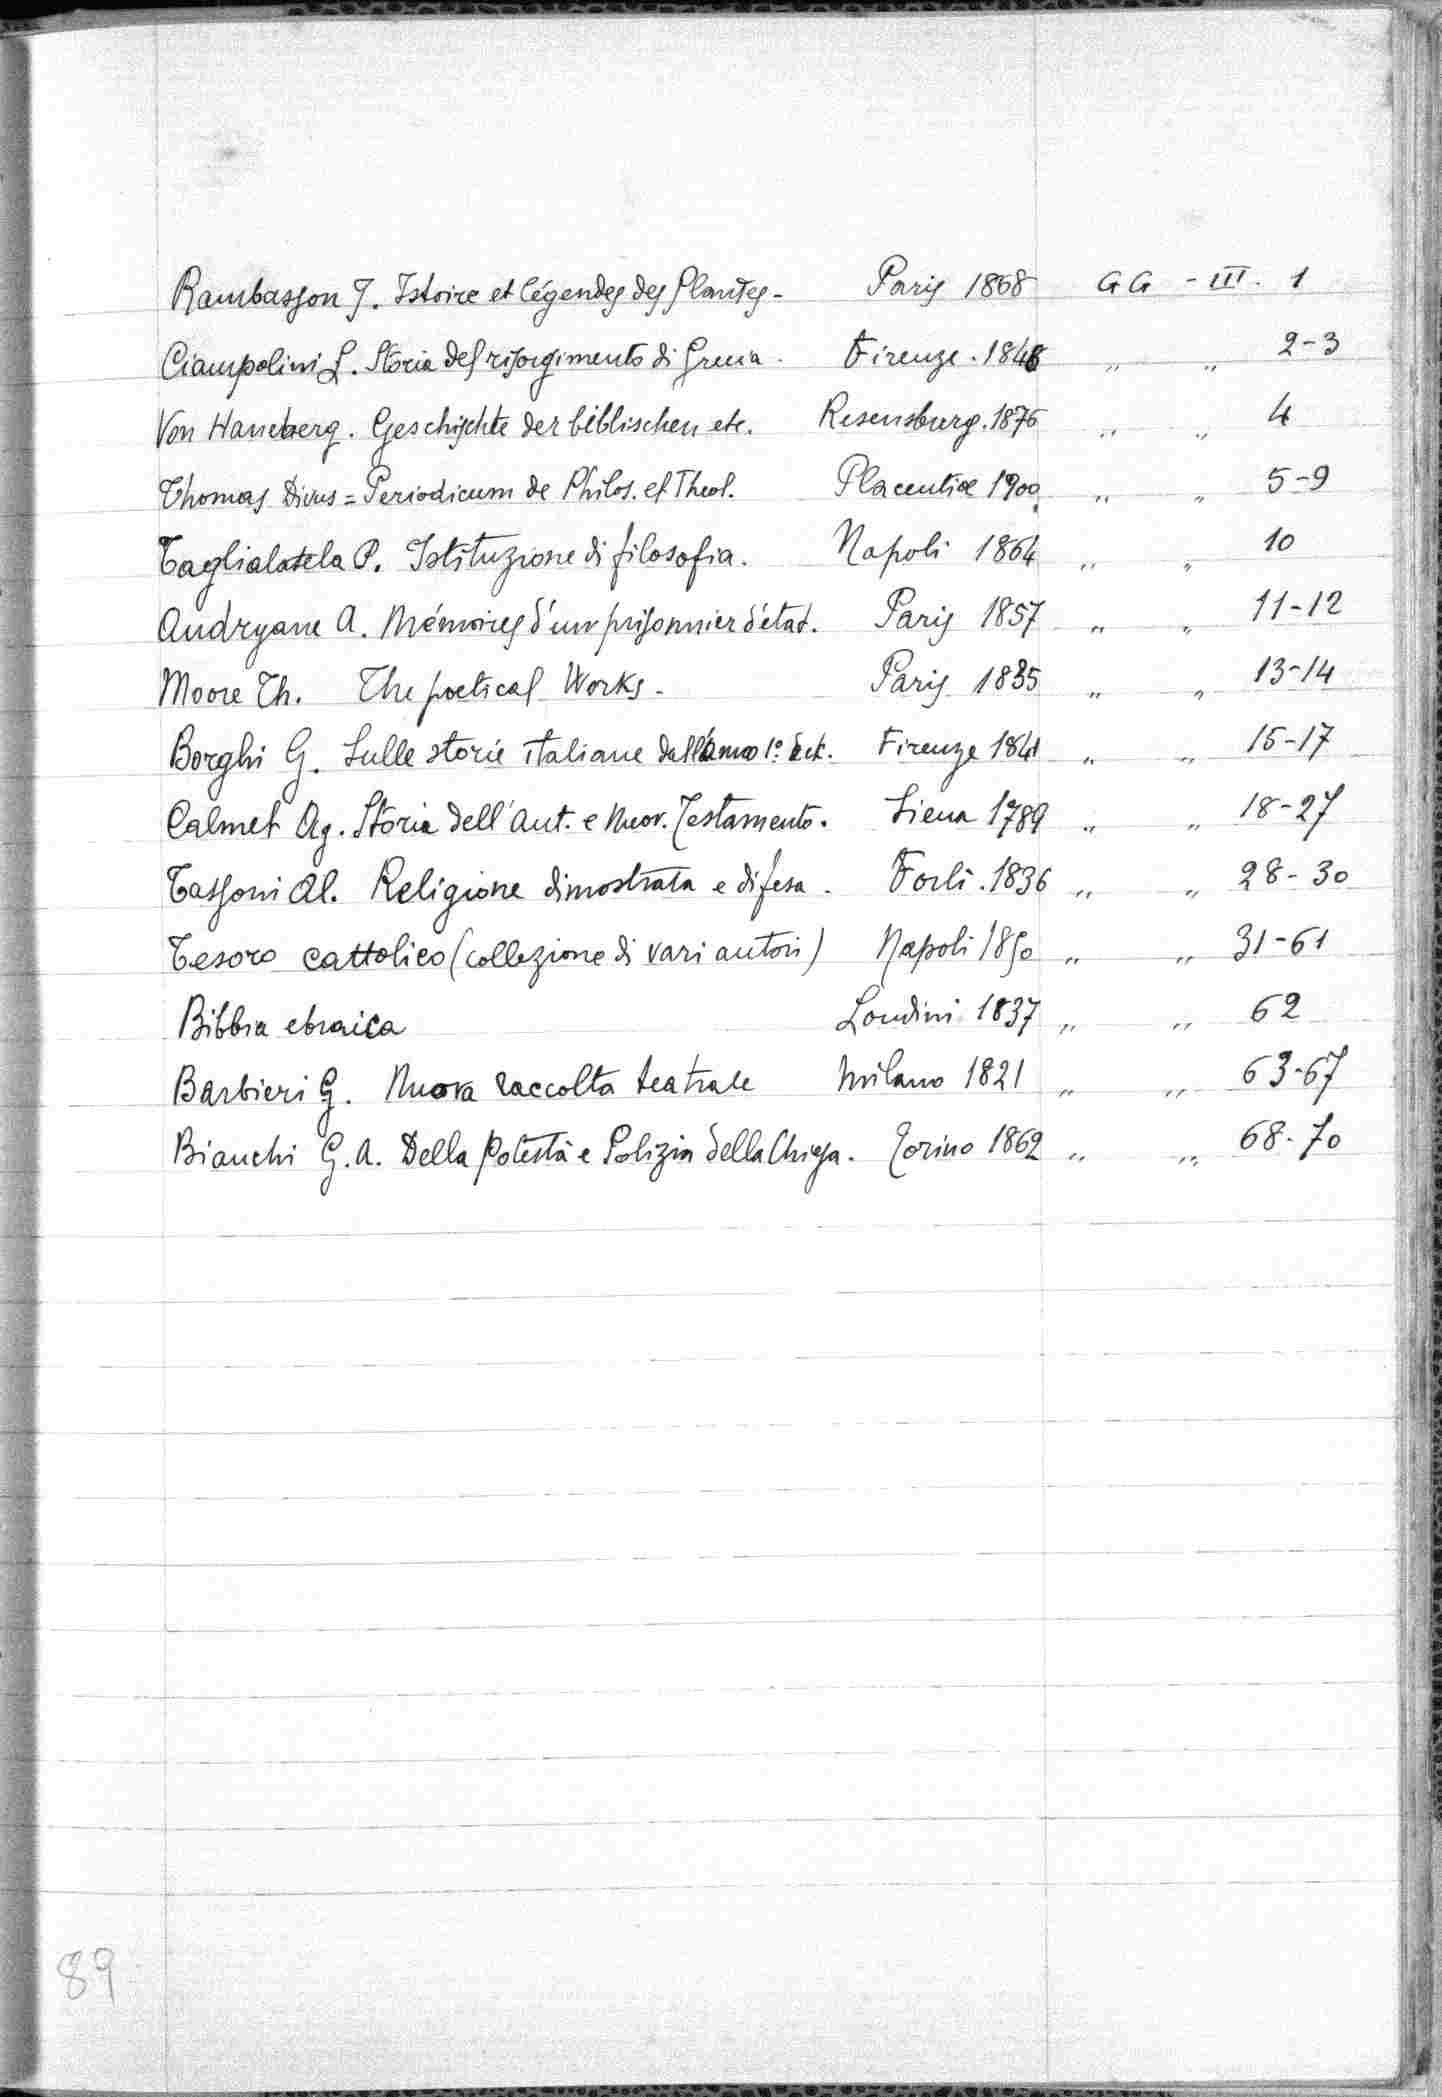 Rambasson J. Istoire et légendes des Plantes - Paris 1868 GG - III. 1
Ciampolini L. Storia del risorgimento di Grecia. Firenze. 1846 " " 2-3
Von Haneberg. Geschichte der biblischen etc. Resensburg. 1876 " " 4
Thomas Divus = Periodicum de Philos. et Theol. Placentiæ 1900 " " 5-9
Taglialatela P. Istituzione di filosofia. Napoli 1864 " " 10
Andryane A. Mémoires d'un prisonnier d'état. Paris 1857 " " 11-12
Moore Th. The poetical Works - Paris 1835 " " 13-14
Borghi G. Sulle storie italiane dall'anno 1° ect. Firenze 1841 " " 15-17
Calmet Ag. Storia dell'Ant. e Nuov. Testamento. Siena 1789 " " 18-27
Tassoni Al. Religione dimostrata e difesa. Forlì. 1836 " " 28-30
Tesoro cattolico (collezione di vari autori) Napoli 1850 " " 31-61
Bibbia ebraica Londini 1837 " " 62
Barbieri G. Nuova raccolta teatrale Milano 1821 " " 63-67
Bianchi G. A. Della Potestà e Polizia della Chiesa. Torino 1862 " " 68-70
89